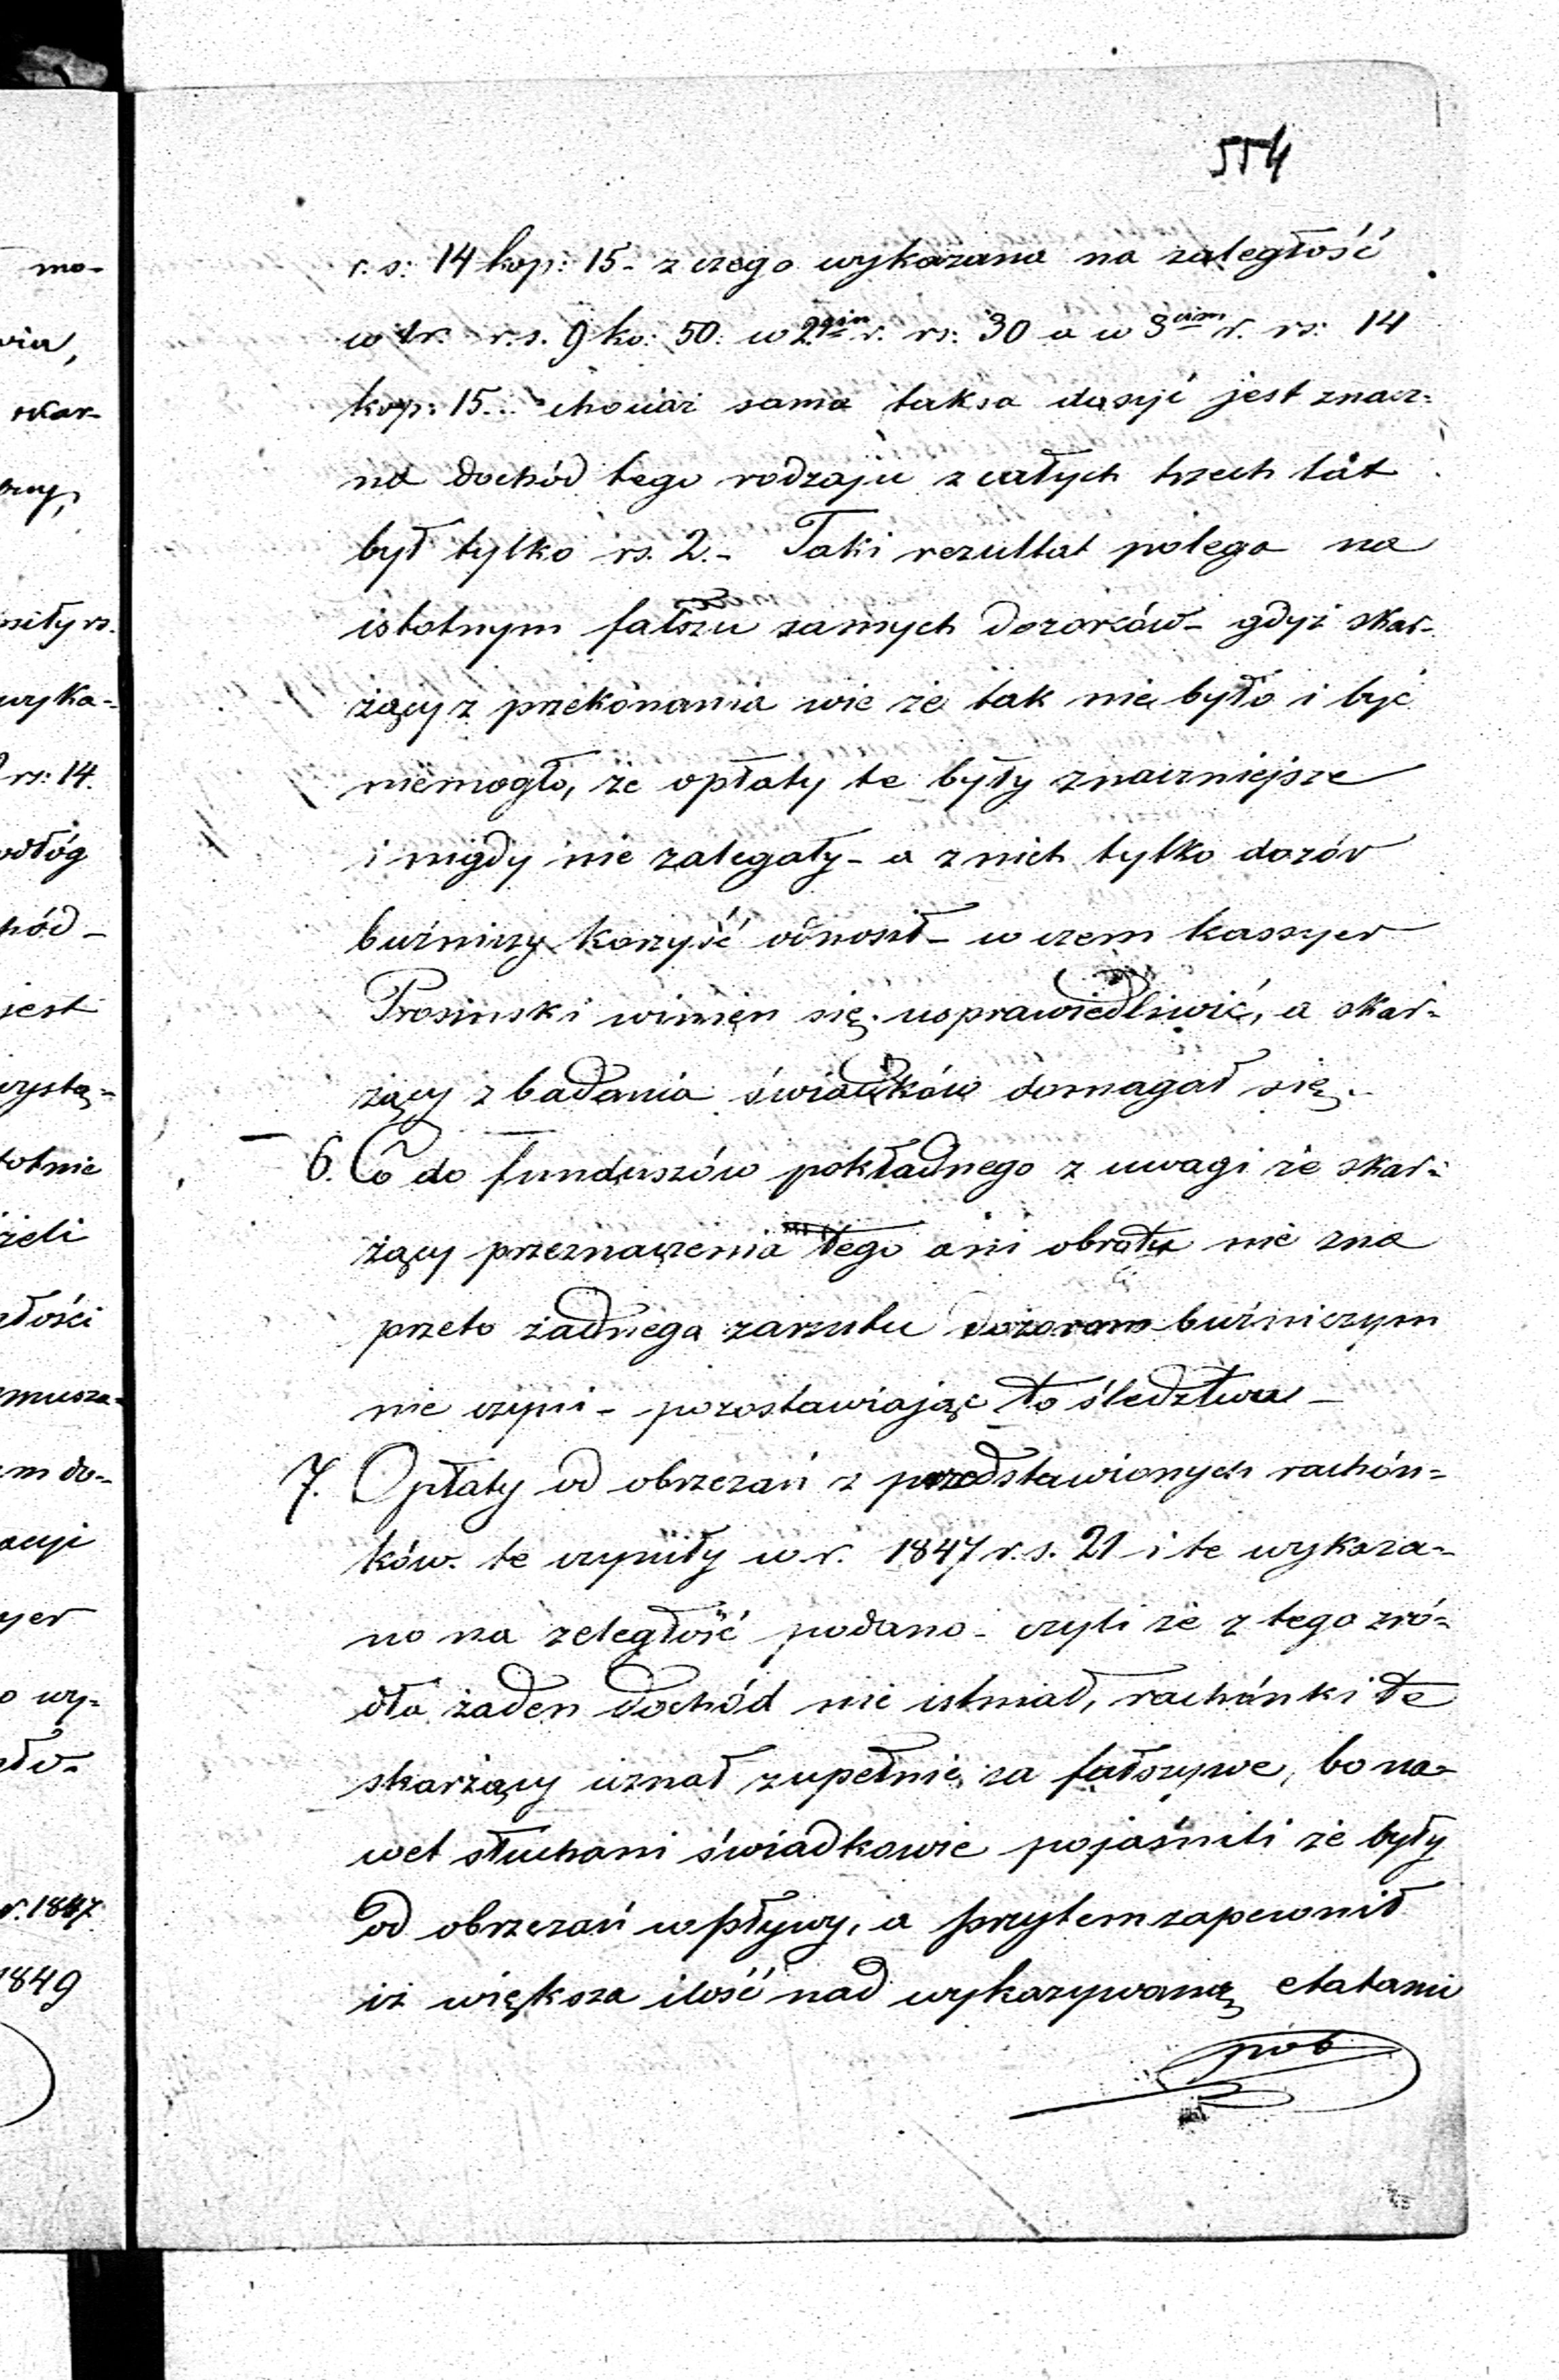 554
r. s: 14 kop: 15 - z czego wykazana na zaległość
w 1r. r. s. 9 ko: 50: w 2gim r. rs: 30 a w 3cim r. rs: 14
kop: 15. - chociaż sama taksa dosyć jest znacz-
na dochód tego rodzaju z całych trzech lat
był tylko rs. 2. - Taki rezultat polega na
istotnym fałszu samych dozorców - gdyż skar-
żący z przekonania wie że tak nie było i być
niemogło, że opłaty te były znaczniejsze
i nigdy nie zalegały - a z nich tylko dozór
bużniczy korzyść odnosił - w czem kassyer
Prosinski winien się usprawiedliwić, a skar-
żący z badania świadków domagał się. -
6. Co do funduszów pokładnego z uwagi że skar-
żący przeznaczenia tego ani obrotu nie zna
przeto żadnego zarzutu dozorom bużniczym
nie czyni - pozostawiając to śledztwu -
7. Opłaty od obrzezań z przedstawionych rachón-
ków te czyniły w r. 1847 r. s. 21 i te wykaza-
no na zeległość podano - czyli że z tego zró-
dła żaden dochód nie istniał, rachónki te
skarżący uznał zupełnie za fałszywe, bo na-
wet słuchani świadkowie pojaśnili że były
od obrzezań wpływy, a przytem zapewnił
iż większa ilość nad wykazywaną etatami
pob
mo-
wia,
skar-
wyka-
rs: 14.
odłóg
hód -
jest
wystą-
totnie
żeli
złości
zmusza-
em do-
acyi
yer
o wy-
r. 1847
1849